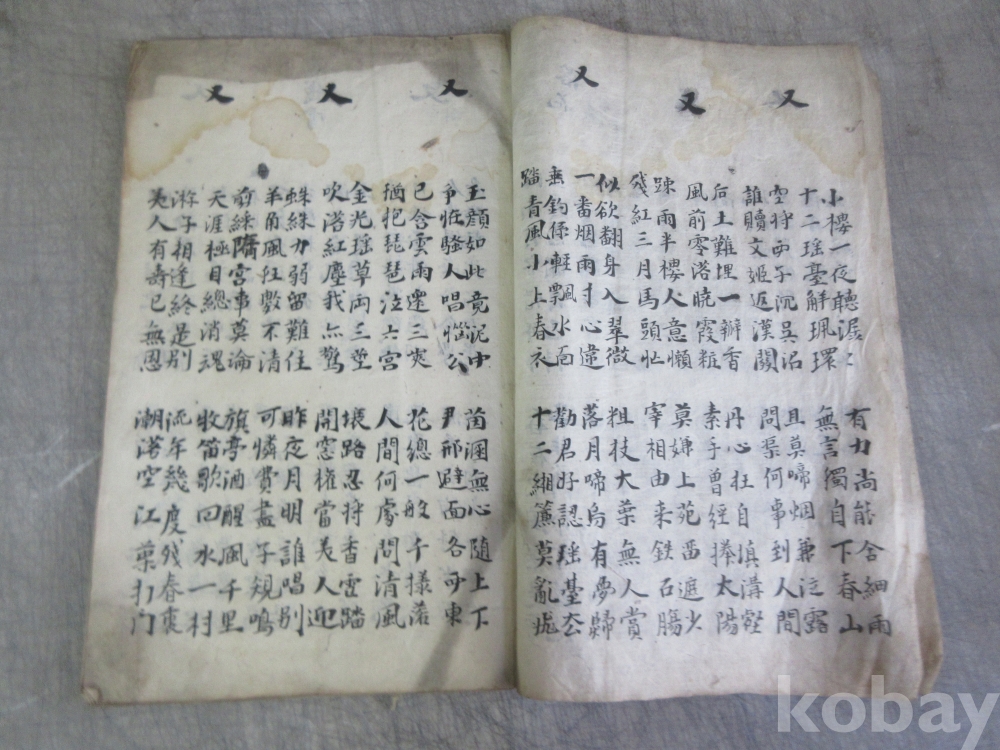 又
小樓一夜聽潺〻
十二瑤臺解珮環
有力尚能含細雨
無言獨自下春山
空將西子沉吳沼
誰贖文姬返漢關
且莫啼烟兼泣露
問渠何事到人間
又
后土難埋一瓣香
風前零落曉霞粧
丹心枉自塡溝壑
素手曾經捧太陽
踈雨半樓人意懶
殘紅三月馬頭忙
莫嫌上苑西遮少
宰相由来鉄石膓
又
似欲翻身入翠微
一番烟雨寸心違
粗枝大葉無人賞
落月啼烏有夢歸
垂釣係輕飄水面
踏青風小上春衣
勸君好認瑤臺去
十二緗簾莫亂垂
又
玉顏如此竟泥中
爭怪騷人唱惱公
茵溷無心随上下
尹邢避面各西東
已含雲雨還三峽
猶把琵琶泣六宮
花總一般千樣落
人間何處問清風
又
金光瑤草両三莖
吹落紅塵我亦驚
壞路忍將香雪踏
開窓權當美人迎
蛛絲力弱留難住
羊角風狂數不清
昨夜月明誰唱別
可憐費盡子規鳴
又
剪綵隋宮事莫論
天涯極目總消魂
旗亭酒醒風千里
牧笛歌回水一村
游子相逢終是別
美人有壽已無恩
流年幾度残春裏
潮落空江葉打門
kobay